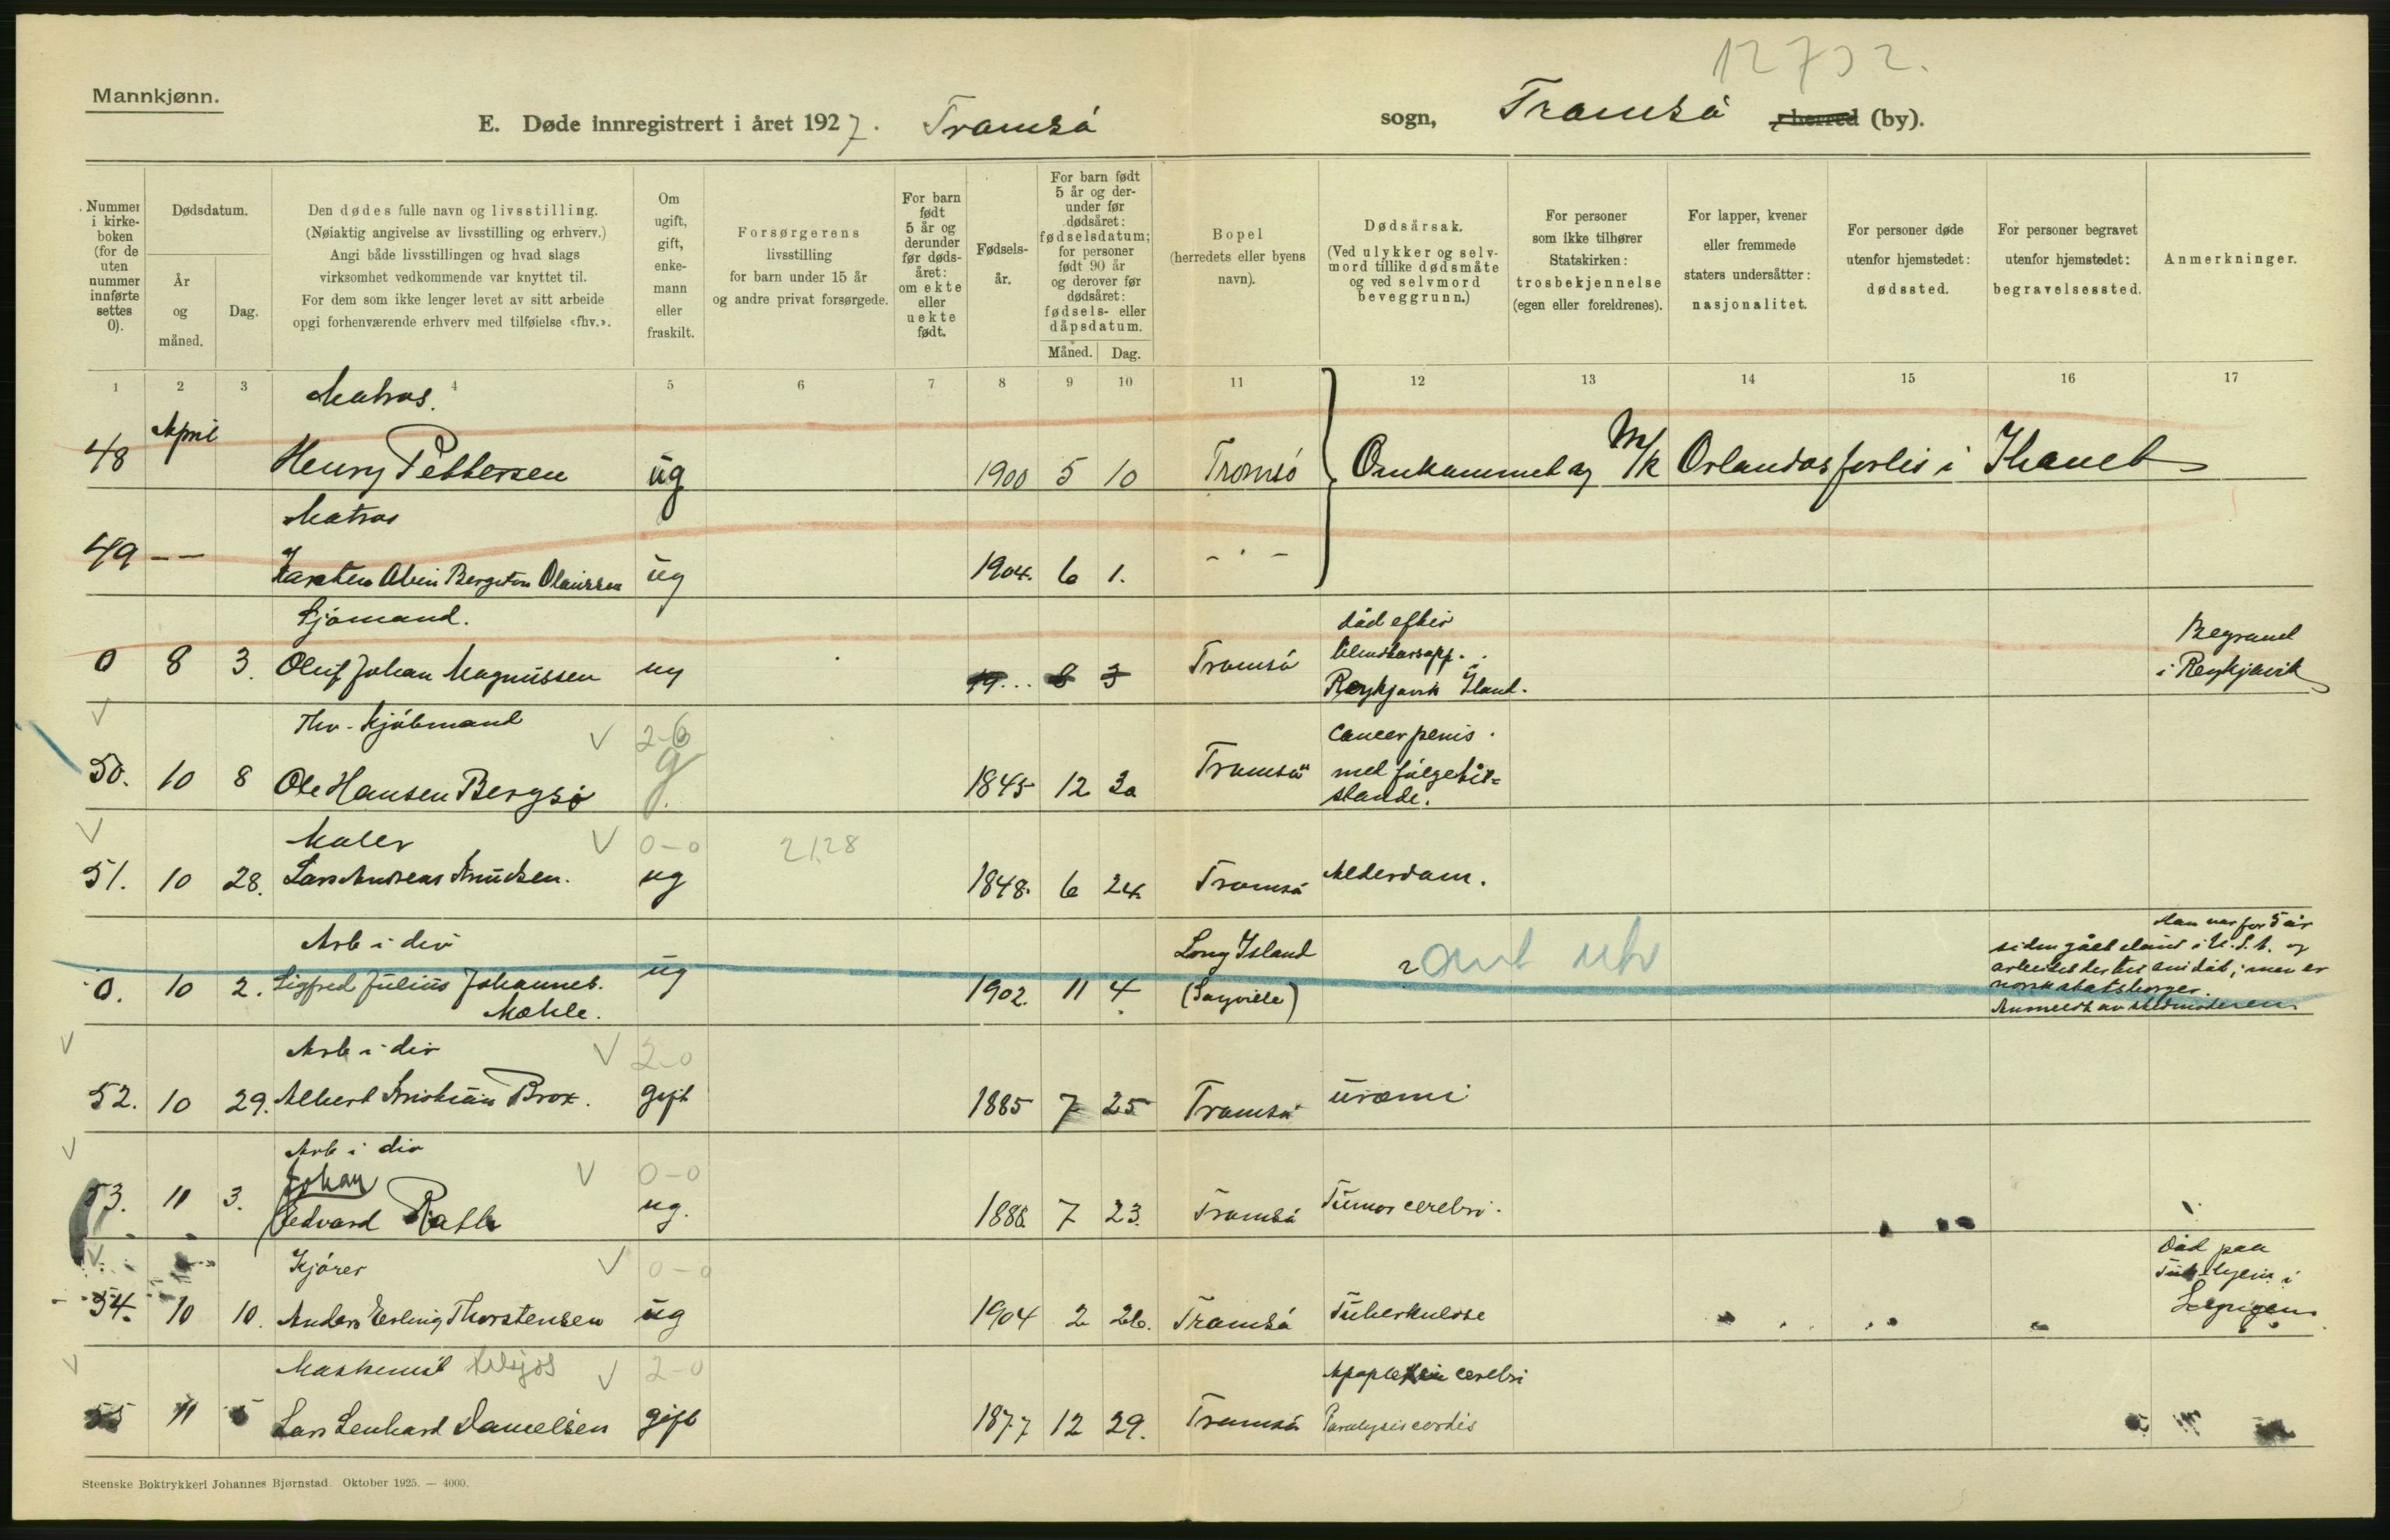 12732.
Mannkjønn.
E. Døde innregistrert i året 1927. Tromsö sogn, Tromsö herred (by).
Nummer i kirkeboken (for de uten nummer innførte settes 0).
Dødsdatum.
År og måned.
Dag.
Den dødes fulle navn og livsstilling.
(Nøiaktig angivelse av livsstilling og erhverv.)
Angi både livsstillingen og hvad slags
virksomhet vedkommende var knyttet til.
For dem som ikke lenger levet av sitt arbeide
opgi forhenværende erhverv med tilføielse «fhv.».
Om ugift, gift, enkemann eller fraskilt.
Forsørgerens
livsstilling
for barn under 15 år
og andre privat forsørgede.
For barn født 5 år og derunder før dødsåret: om ekte eller uekte født.
Fødselsår.
For barn født 5 år og derunder før dødsåret: fødselsdatum; for personer født 90 år og derover før dødsåret: fødsels- eller dåpsdatum.
Måned. Dag.
Bopel
(herredets eller byens
navn).
Dødsårsak.
(Ved ulykker og selvmord tillike dødsmåte og ved selvmord beveggrunn.)
For personer
som ikke tilhører
Statskirken:
trosbekjennelse
(egen eller foreldrenes).
For lapper, kvener
eller fremmede
staters undersåtter:
nasjonalitet.
For personer døde
utenfor hjemstedet:
dødssted.
For personer begravet
utenfor hjemstedet:
begravelsessted.
Anmerkninger.
1 2 3 4 5 6 7 8 9 10 11 12 13 14 15 16 17
Matros.
48 April Henry Pettersen ug 1900 5 10 Tromsö Omkommet ag M/K Orlandos forlis i
Matros
49 — — Karsten Bergeton Olaussen ug 1904. 6 1. - " -
Sjömand.
0 8 3. Oluf Johan Magnussen ug 19... 8 3 Tromsö död efter
Blindtarmop.
Reykjavik Island.
Begravet
i Reykjavik
Fhv. Kjöbmand 2-6
50. 10 8 Ole Hansen Bergsö g. 1845 12 30 Tromsö Cancer penis.
med fölgetil=
stande.
Maler 0-0 2128
51. 10 28. Lars Andreas Knudsen. ug 1848. 6 24. Tromsö Alderdom.
Arb i div
0. 10 2. Sigfred Julius Johannes. ug 1902. 11 4. Long Island
Mæhle. (Sayville) ?
Han var for 5 år
siden gået iland i U.S.A. og
; men er
norsk statsborger.
Anmeldt av stedmoderen
Arb i div 2-0
52. 10 29. Albert Kristian Brox. gift 1885 7 25 Tromsö uræmi
Arb i div 0-0
53. 11 3. Johan
Edvard Rath ug. 1886. 7 23. Tromsö Tumor cerebri.
Kjörer 0-0
54. 10 10. Anders Erling Thorstensen ug 1904 2 26. Tromsö Tuberkulose
Död paa
i
Maskinist 2-0
55 11 5 Lars Lenhard Danielsen gift 1877 12 29. Tromsö Apoplexia cerebri
Paralysis cordis
Steenske Boktrykkeri Johannes Bjørnstad. Oktober 1925. — 4000.